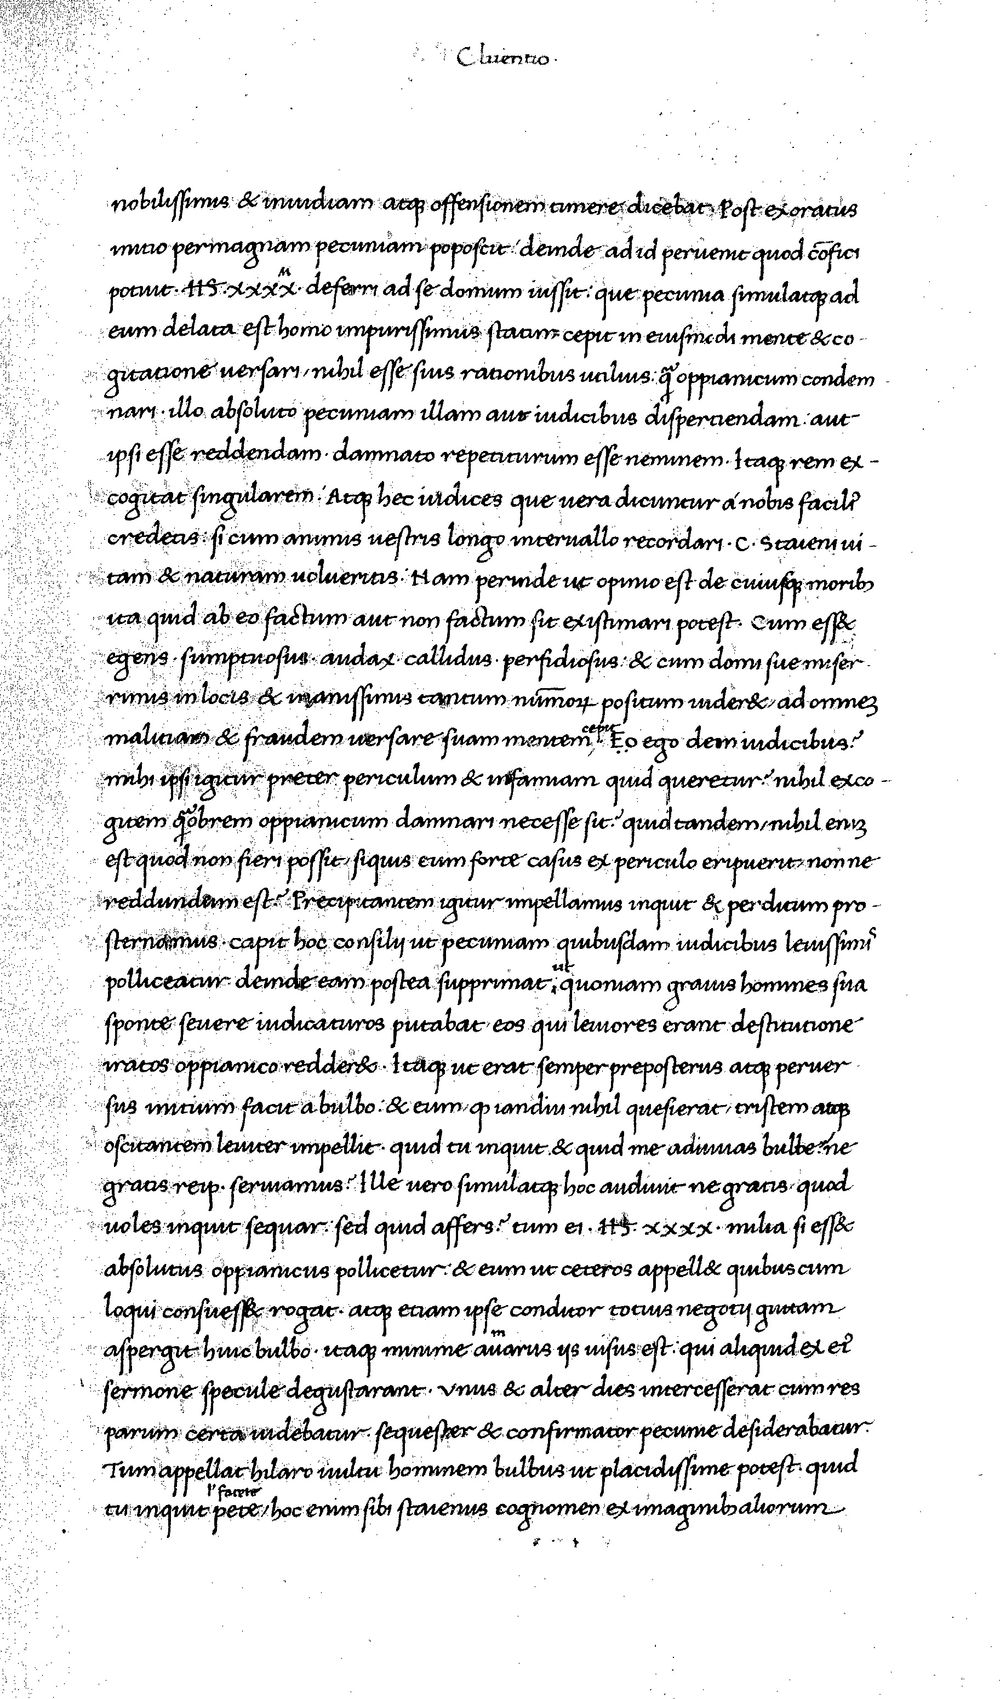 Cluentio.
nobilissimis & inuidiam atqꝫ offensionem timere dicebat. Post exoratus
initio permagnam pecuniam poposcit: deinde ad id peruenit quod cōfici
potuit. HS. xxxx̊. deferri ad se domum iussit: que pecunia simulatqꝫ ad
eum delata est homo impurissimus statim cepit in eiusmodi mente & co-
gitatione uersari, nihil esse suis rationibus utilius. q̄ oppianicum condem
nari. illo absoluto pecuniam illam aut iudicibus dispertiendam: aut
ipsi esse reddendam. damnato repetiturum esse neminem. Itaqꝫ rem ex-
cogitat singularem. Atqꝫ hec iudices que uera dicuntur a nobis facilr̄
credetis: si cum animis uestris longo interuallo recordari. C. Staieni ui-
tam & naturam uolueritis. Nam perinde ut opinio est de cuiusqꝫ moribꝫ
ita quid ab eo factum aut non factum sit existimari potest. Cum ess&
egens. sumptuosus. audax. callidus. perfidiosus: & cum domi sue miser
rimis in locis & inanissimis tantum nūmoꝝ positum uider&, ad omneꝫ
malitiam & fraudem uersare suam mentem cepit. Eo ego dem iudicibus?
mihi ipsi igitur preter periculum & infamiam quid queretur? nihil exco-
gitem q̄obrem oppianicum damnari necesse sit? quid tandem, nihil eniꝫ
est quod non fieri possit, siquis eum forte casus ex periculo eripuerit, non ne
reddundum est? Precipitantem igitur impellamus inquit & perditum pro-
sternamus. capit hoc consilij ut pecuniam quibusdam iudicibus leuissimi᷒
polliceatur deinde eam postea supprimat. ut quoniam grauis homines sua
sponte seuere iudicaturos putabat, eos qui leuiores erant destitutione
iratos oppianico redder&. Itaqꝫ ut erat semper preposterus atqꝫ peruer
sus initium facit a bulbo: & eum, ꝙ iandiu nihil quesierat, tristem atqꝫ
oscitantem leuiter impellit. quid tu inquit & quid me adiuuas bulbe? ne
gratis reip. seruiamus? Ille uero simulatqꝫ hoc audiuit ne gratis, quod
uoles inquit sequar. sed quid affers? tum ei. HS. xxxx. milia si ess&
absolutus oppianicus pollicetur. & eum ut ceteros appell& quibuscum
loqui consuess& rogat. atqꝫ etiam ipse conditor totius negotij guttam
aspergit huic bulbo. itaqꝫ minime amarus ijs uisus est. qui aliquid ex ei᷒
sermone specule degustarant. Vnus & alter dies intercesserat cum res
parum certa uidebatur. sequester & confirmator pecunie desiderabatur.
Tum appellat hilaro uultu hominem bulbus ut placidissime potest. quid
l' facete
tu inquit pete, hoc enim sibi staienus cognomen ex imaginibꝫ aliorum